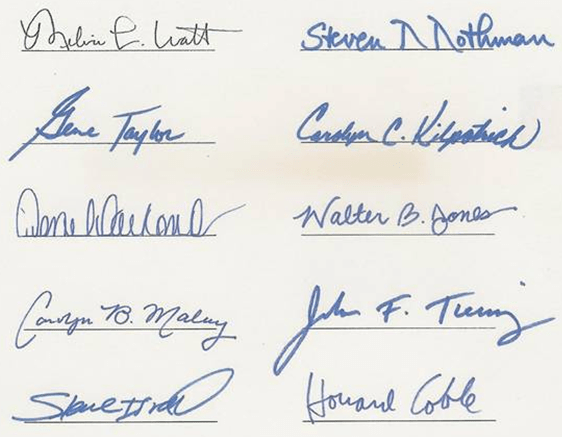 Melvin L. Watt Steven R Rothman
Gene Taylor Carolyn C. Kilpatrick
Walter B. Jones
Carolyn B. Maloney John F. Tierney
Steve Israel Howard Coble